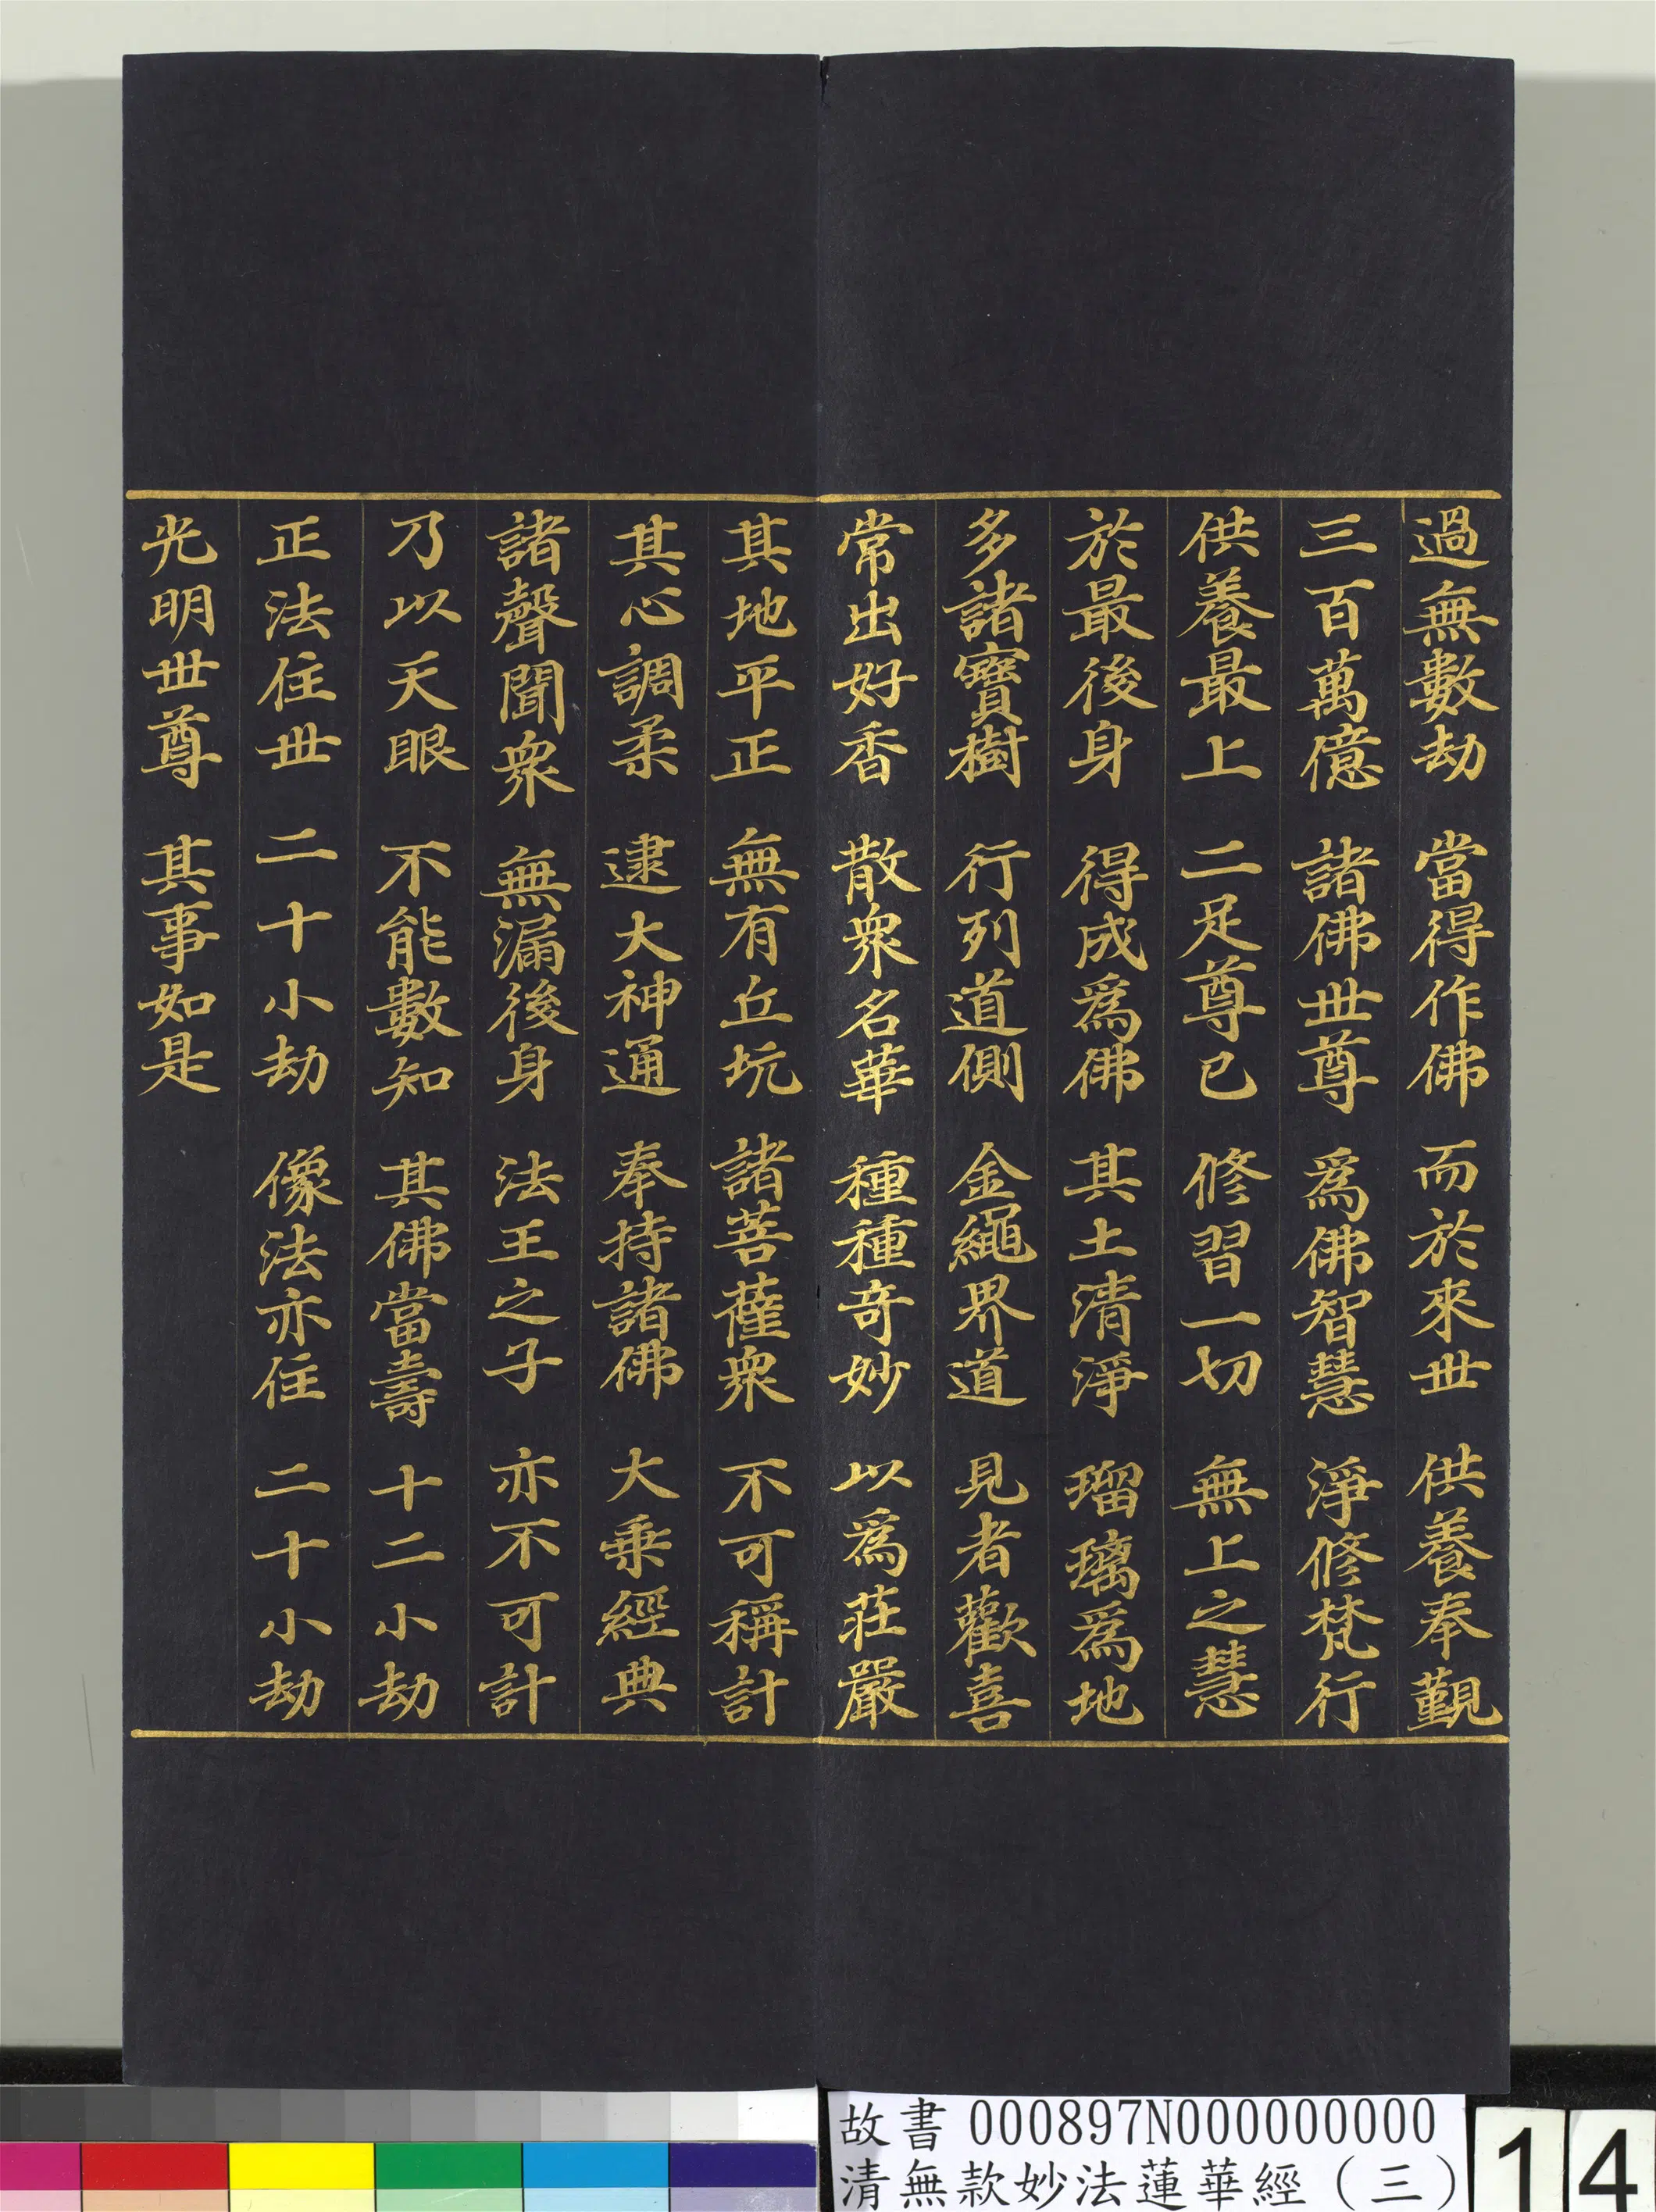 過無數劫 當得作佛 而於來世 供養奉覲
三百萬億 諸佛世尊 爲佛智慧 淨修梵行
供養最上 二足尊已 修習一切 無上之慧
於最後身 得成爲佛 其土清淨 瑠璃爲地
多諸寶樹 行列道側 金繩界道 見者歡喜
常出好香 散衆名華 種種奇妙 以爲莊嚴
其地平正 無有丘坑 諸菩薩衆 不可稱計
其心調柔 逮大神通 奉持諸佛 大乘經典
諸聲聞衆 無漏後身 法王之子 亦不可計
乃以天眼 不能數知 其佛當壽 十二小劫
正法住世 二十小劫 像法亦住 二十小劫
光明世尊 其事如是
故書 000897N000000000
清無款妙法蓮華經(三)
14